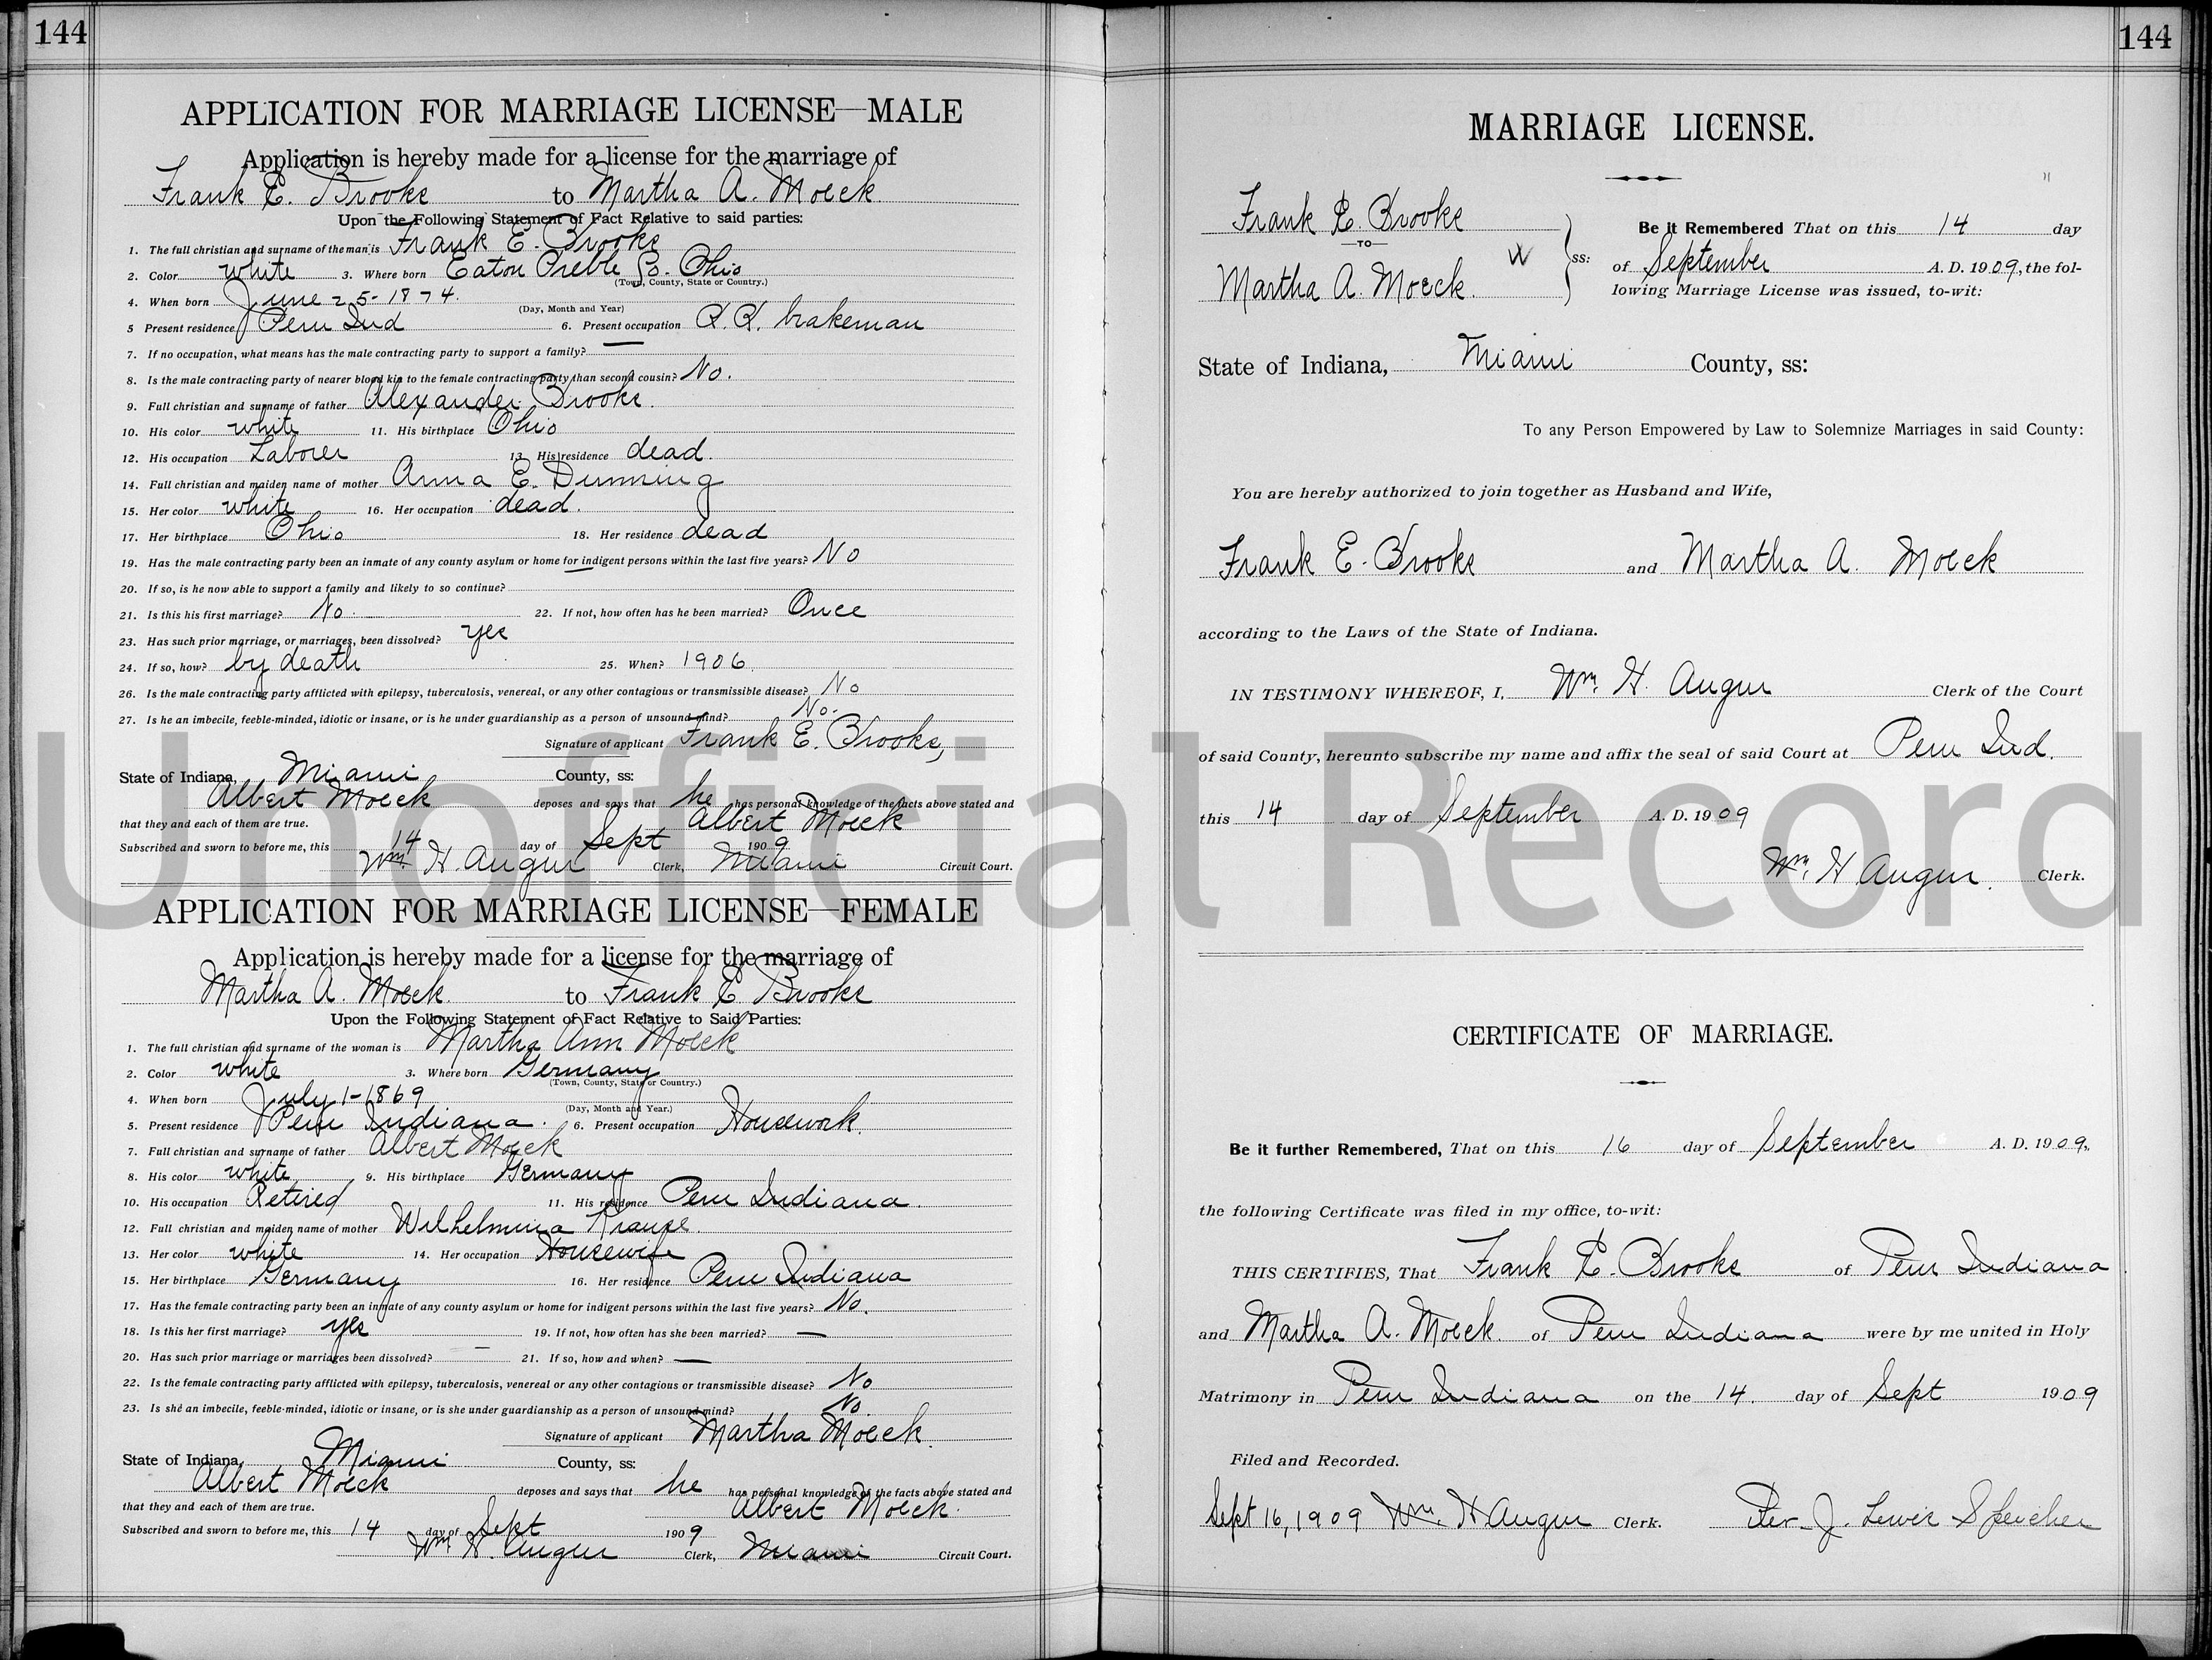 144
APPLICATION FOR MARRIAGE LICENSE—MALE
Application is hereby made for a license for the marriage of
Frank E. Brooks to Martha A. Moeck
Upon the Following Statement of Fact Relative to said parties:
1. The full christian and surname of the man is Frank E. Brooks
2. Color white 3. Where born Eaton Preble Co. Ohio
(Town, County, State or Country.)
4. When born June 25-1874.
(Day, Month and Year)
5 Present residence Peru Ind 6. Present occupation R.R. brakeman
7. If no occupation, what means has the male contracting party to support a family? —
8. Is the male contracting party of nearer blood kin to the female contracting party than second cousin? No.
9. Full christian and surname of father Alexander Brooks.
10. His color white 11. His birthplace Ohio
12. His occupation Laborer 13. His residence dead.
14. Full christian and maiden name of mother Anna E. Dunning
15. Her color white 16. Her occupation dead.
17. Her birthplace Ohio 18. Her residence dead
19. Has the male contracting party been an inmate of any county asylum or home for indigent persons within the last five years? No
20. If so, is he now able to support a family and likely to so continue? —
21. Is this his first marriage? No. 22. If not, how often has he been married? Once
23. Has such prior marriage, or marriages, been dissolved? yes
24. If so, how? by death 25. When? 1906.
26. Is the male contracting party afflicted with epilepsy, tuberculosis, venereal, or any other contagious or transmissible disease? No
27. Is he an imbecile, feeble-minded, idiotic or insane, or is he under guardianship as a person of unsound mind? No.
Signature of applicant Frank E. Brooks,
State of Indiana, Miami County, ss:
Albert Moeck deposes and says that he has personal knowledge of the facts above stated and
that they and each of them are true. Albert Moeck
Subscribed and sworn to before me, this 14 day of Sept 1909
Wm. H. Augur Clerk, Miami Circuit Court.
APPLICATION FOR MARRIAGE LICENSE—FEMALE
Application is hereby made for a license for the marriage of
Martha A. Moeck. to Frank E Brooks
Upon the Following Statement of Fact Relative to Said Parties:
1. The full christian and surname of the woman is Martha Ann Moeck
2. Color white 3. Where born Germany
(Town, County, State or Country.)
4. When born July 1-1869
(Day, Month and Year.)
5. Present residence Peru Indiana. 6. Present occupation Housework.
7. Full christian and surname of father Albert Moeck
8. His color white 9. His birthplace Germany
10. His occupation Retired 11. His residence Peru Indiana.
12. Full christian and maiden name of mother Wilhelmina Krause.
13. Her color white 14. Her occupation Housewife
15. Her birthplace Germany 16. Her residence Peru Indiana
17. Has the female contracting party been an inmate of any county asylum or home for indigent persons within the last five years? No.
18. Is this her first marriage? yes 19. If not, how often has she been married? —
20. Has such prior marriage or marriages been dissolved? — 21. If so, how and when? —
22. Is the female contracting party afflicted with epilepsy, tuberculosis, venereal or any other contagious or transmissible disease? No
23. Is she an imbecile, feeble-minded, idiotic or insane, or is she under guardianship as a person of unsound mind? No.
Signature of applicant Martha Moeck.
State of Indiana, Miami County, ss:
Albert Moeck deposes and says that he has personal knowledge of the facts above stated and
that they and each of them are true. Albert Moeck.
Subscribed and sworn to before me, this 14 day of Sept 1909
Wm H. Augur Clerk, Miami Circuit Court.
144
MARRIAGE LICENSE.
Frank E. Brooks
TO
Martha A. Moeck.
W
ss:
Be it Remembered That on this 14 day
of September A. D. 1909, the fol-
lowing Marriage License was issued, to-wit:
State of Indiana, Miami County, ss:
To any Person Empowered by Law to Solemnize Marriages in said County:
You are hereby authorized to join together as Husband and Wife,
Frank E. Brooks and Martha A. Moeck
according to the Laws of the State of Indiana.
IN TESTIMONY WHEREOF, I, Wm. H. Augur Clerk of the Court
of said County, hereunto subscribe my name and affix the seal of said Court at Peru Ind.
this 14 day of September A. D. 1909
Wm. H Augur. Clerk.
CERTIFICATE OF MARRIAGE.
Be it further Remembered, That on this 16 day of September A. D. 1909.
the following Certificate was filed in my office, to-wit:
THIS CERTIFIES, That Frank E. Brooks of Peru Indiana
and Martha A. Moeck. of Peru Indiana were by me united in Holy
Matrimony in Peru Indiana on the 14. day of Sept 1909
Filed and Recorded.
Sept 16, 1909 Wm. H Augur Clerk. Rev. J. Lewis Speicher
Unofficial Record